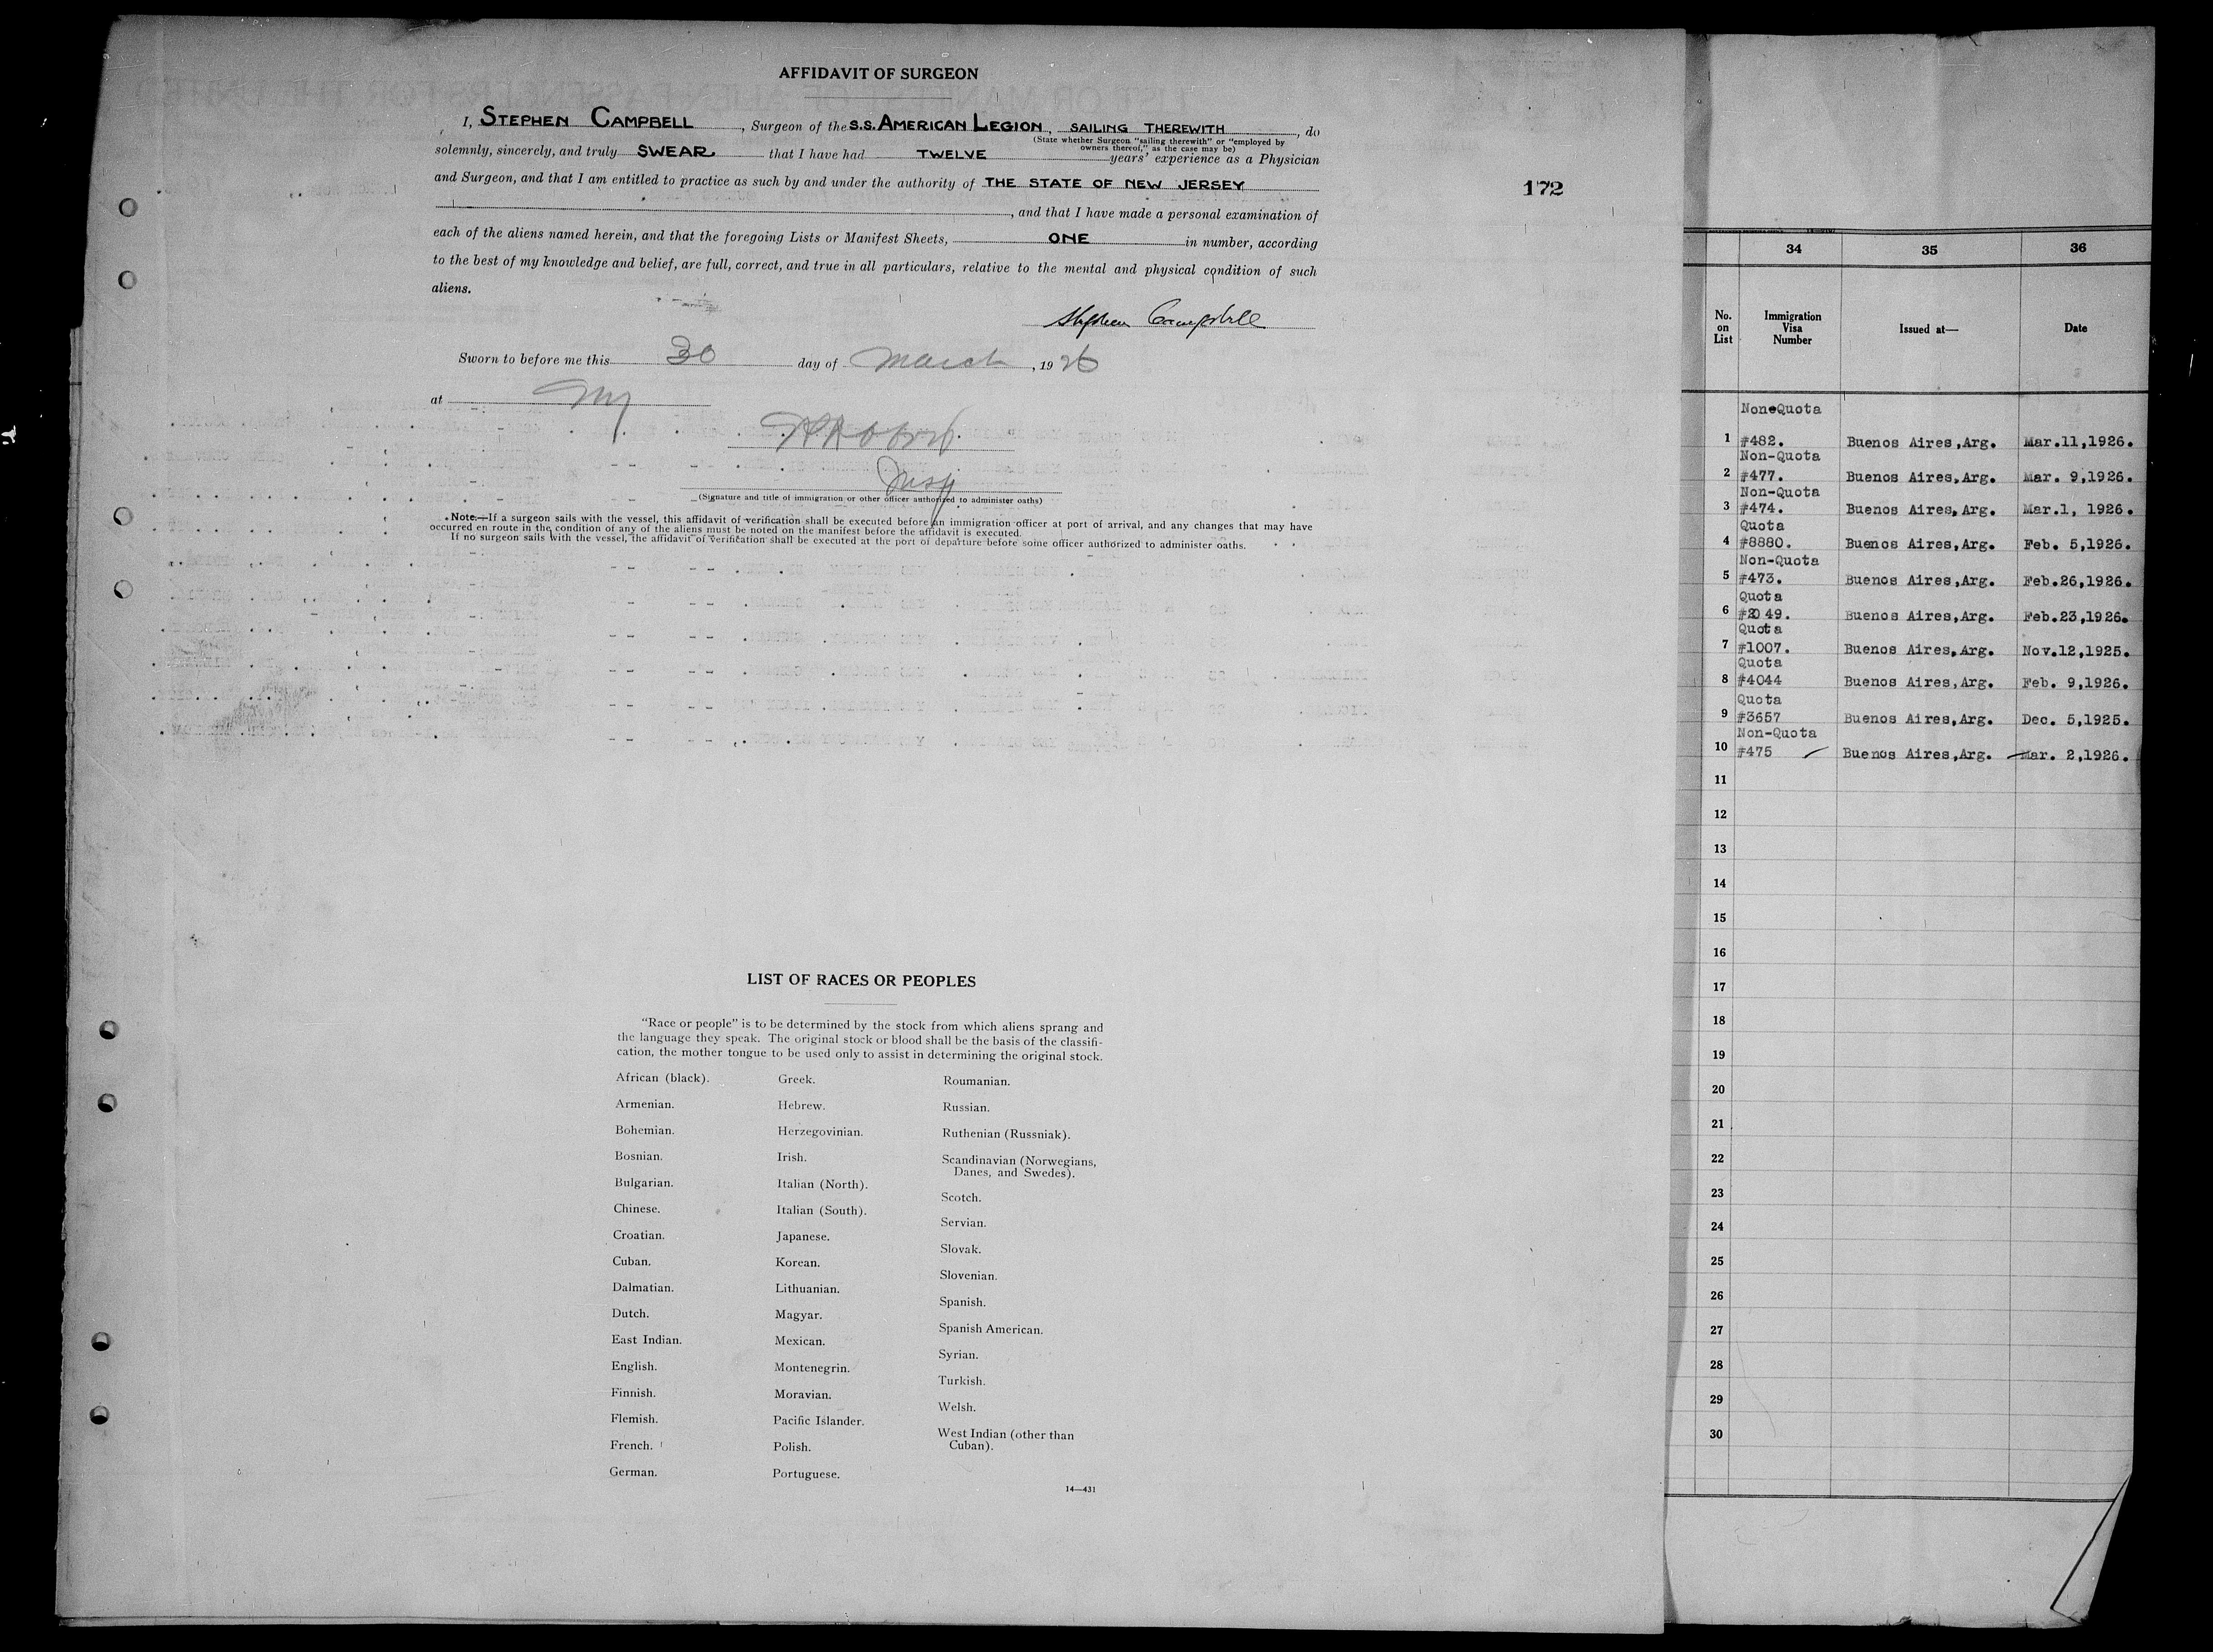 AFFIDAVIT OF SURGEON
I, STEPHEN CAMPBELL, Surgeon of the S.S. AMERICAN LEGION, SAILING THEREWITH, do
(State whether Surgeon "sailing therewith" or "employed by
owners thereof," as the case may be)
solemnly, sincerely, and truly SWEAR that I have had TWELVE years' experience as a Physician
and Surgeon, and that I am entitled to practice as such by and under the authority of THE STATE OF NEW JERSEY
, and that I have made a personal examination of
each of the aliens named herein, and that the foregoing Lists or Manifest Sheets, ONE in number, according
to the best of my knowledge and belief, are full, correct, and true in all particulars, relative to the mental and physical condition of such
aliens.
Stephen Campbell
Sworn to before me this 30 day of March, 1926
at NY
Insp.
(Signature and title of immigration or other officer authorized to administer oaths)
Note.—If a surgeon sails with the vessel, this affidavit of verification shall be executed before an immigration officer at port of arrival, and any changes that may have
occurred en route in the condition of any of the aliens must be noted on the manifest before the affidavit is executed.
If no surgeon sails with the vessel, the affidavit of verification shall be executed at the port of departure before some officer authorized to administer oaths.
172
LIST OF RACES OR PEOPLES
"Race or people" is to be determined by the stock from which aliens sprang and
the language they speak. The original stock or blood shall be the basis of the classifi-
cation, the mother tongue to be used only to assist in determining the original stock.
African (black).
Armenian.
Bohemian.
Bosnian.
Bulgarian.
Chinese.
Croatian.
Cuban.
Dalmatian.
Dutch.
East Indian.
English.
Finnish.
Flemish.
French.
German.
Greek.
Hebrew.
Herzegovinian.
Irish.
Italian (North).
Italian (South).
Japanese.
Korean.
Lithuanian.
Magyar.
Mexican.
Montenegrin.
Moravian.
Pacific Islander.
Polish.
Portuguese.
Roumanian.
Russian.
Ruthenian (Russniak).
Scandinavian (Norwegians,
Danes, and Swedes).
Scotch.
Servian.
Slovak.
Slovenian.
Spanish.
Spanish American.
Syrian.
Turkish.
Welsh.
West Indian (other than
Cuban).
14—431
34 35 36
No. on List Immigration Visa Number Issued at— Date
NoneQuota
1 #482. Buenos Aires,Arg. Mar.11,1926.
Non-Quota
2 #477. Buenos Aires,Arg. Mar. 9,1926.
Non-Quota
3 #474. Buenos Aires,Arg. Mar.1, 1926.
Quota
4 #8880. Buenos Aires,Arg. Feb. 5,1926.
Non-Quota
5 #473. Buenos Aires,Arg. Feb.26,1926.
Quota
6 #2049. Buenos Aires,Arg. Feb.23,1926.
Quota
7 #1007. Buenos Aires,Arg. Nov.12,1925.
Quota
8 #4044 Buenos Aires,Arg. Feb. 9,1926.
Quota
9 #3657 Buenos Aires,Arg. Dec. 5,1925.
Non-Quota
10 #475 Buenos Aires,Arg. Mar. 2,1926.
11
12
13
14
15
16
17
18
19
20
21
22
23
24
25
26
27
28
29
30